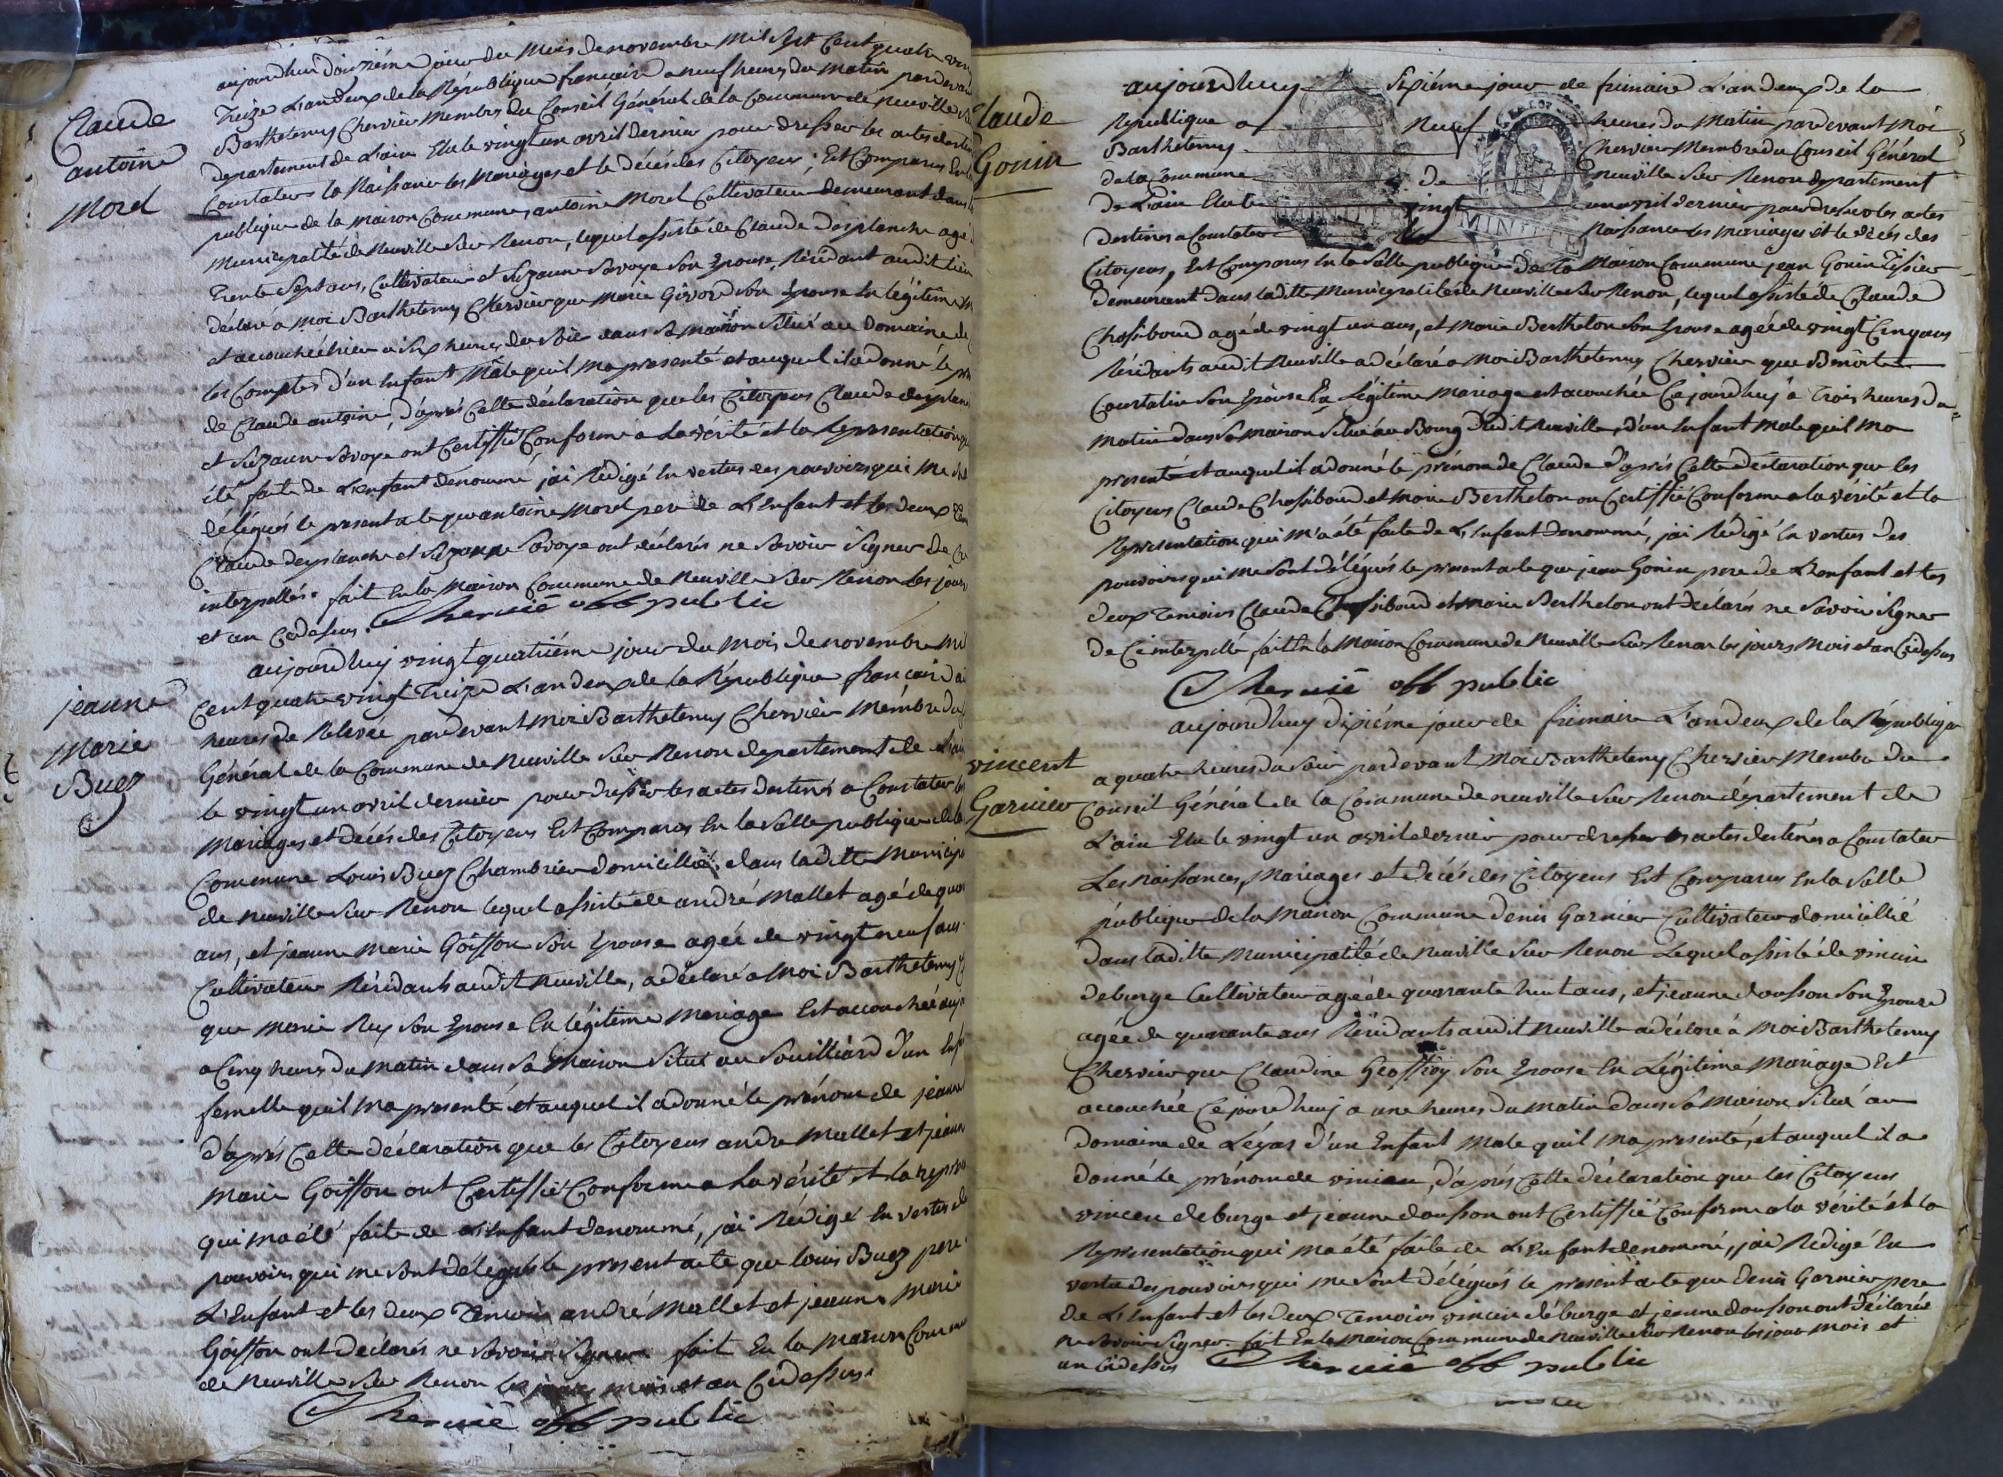 Claude
antoine
Morel
aujourdhui douzième jour du Mois de novembre Mil Sept Cent quatre vin
Treize L'an deux de la République francaise a neuf heures du matin pardevan
Barthelemy Chervier Membre du Conseil Général de la Commune de neuville
departement de L'ain Elu le vingt un avril dernier pour dresser les actes destin
Constater la Naissance les Mariages et le décés des Citoyens : Est Comparus En la
publique de la Maison Commune, antoine Morel Cultivateur demeurant dans la
Municipalité de Neuville Sur Renon, lequel assisté de Claude Desplanche agé
Trente Sept ans, Cultivateur et Suzanne Savoye Son Epouse, Résidant audit lieu
déclaré a Moi Barthelemy Chervier que Marie Givord Son Epouse En légitime M
est accouchée hier a Six heures du Soir dans Sa maison Situé au Domaine de
les Comptes d'un Enfant Mâle quil ma presenté et auquel il a donné le pré
de Claude antoine, d'aprés Cette déclaration que les Citoyens Claude desplan
et Suzanne Savoye ont Certiffié Conforme a La vérité et la Representation q
été faite de L'enfant denommé, jai Rédigé En vertus des pouvoirs qui me s
délégués le present acte que antoine Morel pere de L'Enfant et les deux Tem
Claude desplanche et Suzanne Savoye ont déclarés ne Savoir Signer de Ce
interpellés. fait En la Maison Commune de Neuville Sur Renon les jours
et an Cidessus. Chervié off public
jeanne
Marie
Buez
aujourdhuy vingt quatriéme jour du Mois de novembre Mil
Cent quatre vingt Treize L'an deux de la République francaise a
heures de Relevée pardevant Moi Barthelemy Chervier Membre du
Général de la Commune de Neuville Sur Renon departement de L'ain
le vingt un avril dernier pour dresser les actes destinés a Constater les
Mariages et décés des Citoyens Est Comparus En la Salle publique de la
Commune Louis Buez Chambrier domicillié dans la ditte Municip
de Neuville Sur Renon lequel assisté de andré Mallet agé de quar
ans, et jeanne Marie Goiffon Son Epouse agée de vingt neuf ans
Cultivateur Résidants audit Neuville, a déclaré a Moi Barthelemy C
que Marie Rey Son Epouse En légitime Mariage Est accouchée auj
a Cinq heures du Matin dans Sa Maison Situé au Souilliard d'un Enfa
femelle quil Ma presenté et auquel il a donné le prénom de jeanne
d'aprés Cette déclaration que les Citoyens andre Mallet et jeanne
Marie Goiffon ont Certiffié Conforme a La vérité et la repres
qui ma été faite de L'Enfant denommé, jai Rédigé En vertus d
pouvoirs qui me Sont délégués le present acte que louis Buez pere
L'Enfant et les deux Temoins andré Mallet et jeanne Marie
Goiffon ont Déclarés ne Savoir Signer fait En la Maison Commun
de Neuville Sur Renon les jour, mois et an Cidessus.
Chervié off public
Claude
Gonin
aujourdhuy Sixiéme jour de frimaire L'an deux de la
République a Neuf heures du Matin pardevant Moi
Barthelemy Chervier Membre du Conseil Général
de la Commune de Neuville Sur Renon departement
de L'ain Elu le vingt un avril dernier pour dresser les actes
destinés a Constater la Naissance les Mariages et le décés des
MINUTE MINUTE
Citoyens, Est Comparus En la Salle publique de la Maison Commune jean Gonin Tissier
demeurant dans laditte Municipalité de Neuville Sur Renon, lequel assisté de Claude
Chassiboud agé de vingt un ans, et Marie Berthelon Son Epouse agée de vingt Cinq ans
Résidants audit Neuville a déclaré a Moi Barthelemy Chervier que Benoîte
Courtalin Son Epouse En Légitime Mariage est acouchée Cejourdhuy a Trois heures du
Matin dans Sa Maison Situé au Bourg dudit Neuville, d'un Enfant Male quil Ma
presenté et auquel il a donné le prénom de Claude d'aprés Cette déclaration que les
Citoyens Claude Chassiboud et Marie Berthelon on Certiffié Conforme a la vérité et la
Representation qui m'a été faite de L'Enfant denommé, jai Rédigé En vertus des
pouvoirs qui me Sont délégués le present acte que jean Gonin pere de L'enfant et les
deux Temoins Claude Chassiboud et Marie Berthelon ont déclarés ne Savoir Signer
de Ce interpellé, fait En la Maison Commune de Neuville Sur Renon les jours Mois et an Cidessus
Chervié off public
vincent
Garnier
aujourdhuy dixiéme jour de frimaire L'an deux de la République
a quatre heures du Soir pardevant Moi Barthelemy Chervier Membre du
Conseil Général de la Commune de neuville Sur Renon département de
L'ain Elu le vingt un avril dernier pour dresser les actes destinés a Constater
Les Naissances, Mariages et décés des Citoyens Est Comparus En la Salle
publique de la Maison Commune Denis Garnier Cultivateur domicillié
dans laditte Municipalité de Neuville Sur Renon Lequel assisté de vincen
deburge Cultivateur agé de quarante huit ans, et jeanne douson Son Epouse
agée de quarante ans Résidants audit Neuville a déclaré a Moi Barthelemy
Chervier que Claudine Geoffroy Son Epouse En Légitime Mariage Est
accouchée Cejourdhuj a une heures du Matin dans Sa Maison Situé au
Domaine de Léyas d'un Enfant Male quil Ma presenté, et auquel il a
donné le prénom de vincen, d'aprés Cette déclaration que les Citoyens
vincen deburge et jeanne douson ont Certiffié Conforme a la vérité et la
Representation qui Ma été faite de L'Enfant denommé, jai Redigé En
vertu des pouvoirs qui me Sont délégués le present acte que Denis Garnier pere
de L'Enfant et les deux Temoins vincen déburge et jeanne douson ont déclarés
ne Savoir Signer. fait En la Maison Commune de Neuville Sur Renon les jour Mois et
an Cidessus Chervié off public